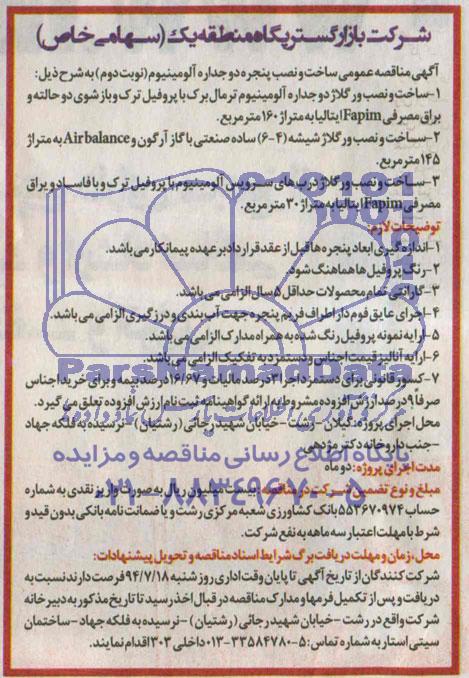 شرکت بازارگستر پگاه منطقه یک (سهامی خاص)
آگهی مناقصه عمومی ساخت و نصب پنجره دو جداره آلومینیوم (نوبت دوم) به شرح ذیل:
۱-ساخت و نصب ور گلاژ دو جداره آلومینیوم ترمال برک با پروفیل ترک و بازشوی دو حالته و
یراق مصرفی Fapim ایتالیا به متراژ ۱۶۰ متر مربع.
۲-ساخت و نصب ور گلاژ شیشه (۴-۶) ساده صنعتی با گاز آرگون و Airbalance به متراژ
۱۴۵ متر مربع.
۳-ساخت و نصب ور گلاژ درب های سرویس آلومینیوم با پروفیل ترک و با فاساد و یراق
مصرفی Fapim ایتالیا به متراژ ۳۰ متر مربع.
توضیحات لازم:
۱-اندازه گیری ابعاد پنجره ها قبل از عقد قرار داد بر عهده پیمانکار می باشد.
۲-رنگ پروفیل ها هماهنگ شود.
۳-گارانتی تمام محصولات حداقل ۵ سال الزامی می باشد.
۴-اجرای عایق فوم دار اطراف فریم پنجره جهت آب بندی و درزگیری الزامی می باشد.
۵-ارایه نمونه پروفیل رنگ شده به همراه مدارک الزامی می باشد.
۶-ارایه آنالیز قیمت اجناس و دستمزد به تفکیک الزامی می باشد.
۷-کسور قانونی برای دستمزد اجرا ۳ درصد مالیات و ۱۶/۶۷ درصد بیمه و برای خرید اجناس
صرفا ۹ درصد ارزش افزوده مشروط به ارائه گواهینامه ثبت نام ارزش افزوده تعلق می گیرد.
محل اجرای پروژه: گیلان - رشت - خیابان شهید رجائی (رشتیان) - نرسیده به فلکه جهاد
-جنب داروخانه دکتر مژدهی
مدت اجرای پروژه: دو ماه
مبلغ و نوع تضمین شرکت در مناقصه: بیست میلیون ریال به صورت واریز نقدی به شماره
حساب ۵۵۳۶۷۰۹۷۴ بانک کشاورزی شعبه مرکزی رشت و یا ضمانت نامه بانکی بدون قید و
شرط با مهلت اعتبار سه ماهه به نفع شرکت.
محل، زمان و مهلت دریافت برگ شرایط اسناد مناقصه و تحویل پیشنهادات:
شرکت کنندگان از تاریخ آگهی تا پایان وقت اداری روز شنبه ۹۴/۷/۱۸ فرصت دارند نسبت به
دریافت و پس از تکمیل فرمها و مدارک مناقصه در قبال اخذ رسید تا تاریخ مذکور به دبیرخانه
شرکت واقع در رشت - خیابان شهید رجائی (رشتیان) - نرسیده به فلکه جهاد - ساختمان
سیتی استار به شماره تماس: ۵-۳۳۵۸۴۷۸۰-۰۱۳ داخلی ۳۰۳ اقدام نمایند.
ParsNamadData
پایگاه اطلاع رسانی مناقصه و مزایده
۰۲۱-۸۸۳۴۹۶۷۰-۵